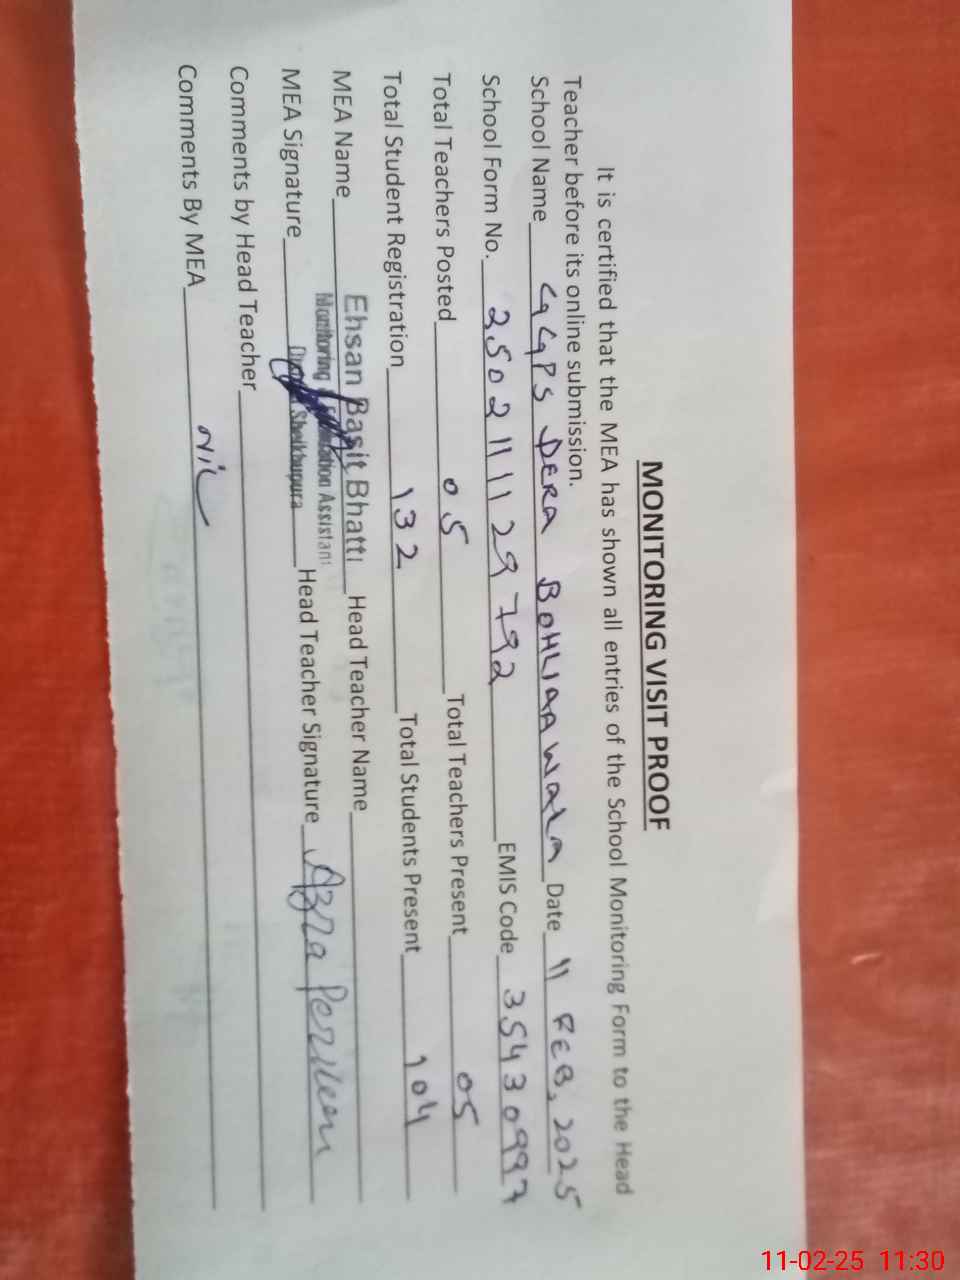 MONITORING VISIT PROOF
It is certified that the MEA has shown all entries of the School Monitoring Form to the Head
Teacher before its online submission.
School Name GGPS DERA BOHLIAAWALA Date 11 FEB, 2025
School Form No. 2502111129792 EMIS Code 35430997
Total Teachers Posted 05 Total Teachers Present 05
Total Student Registration 132 Total Students Present 104
MEA Name Ehsan Basit Bhatti Head Teacher Name
Monitoring Assistant
MEA Signature Sheikhupura Head Teacher Signature Azra Perveen
Comments by Head Teacher
Comments By MEA Nil
11-02-25 11:30